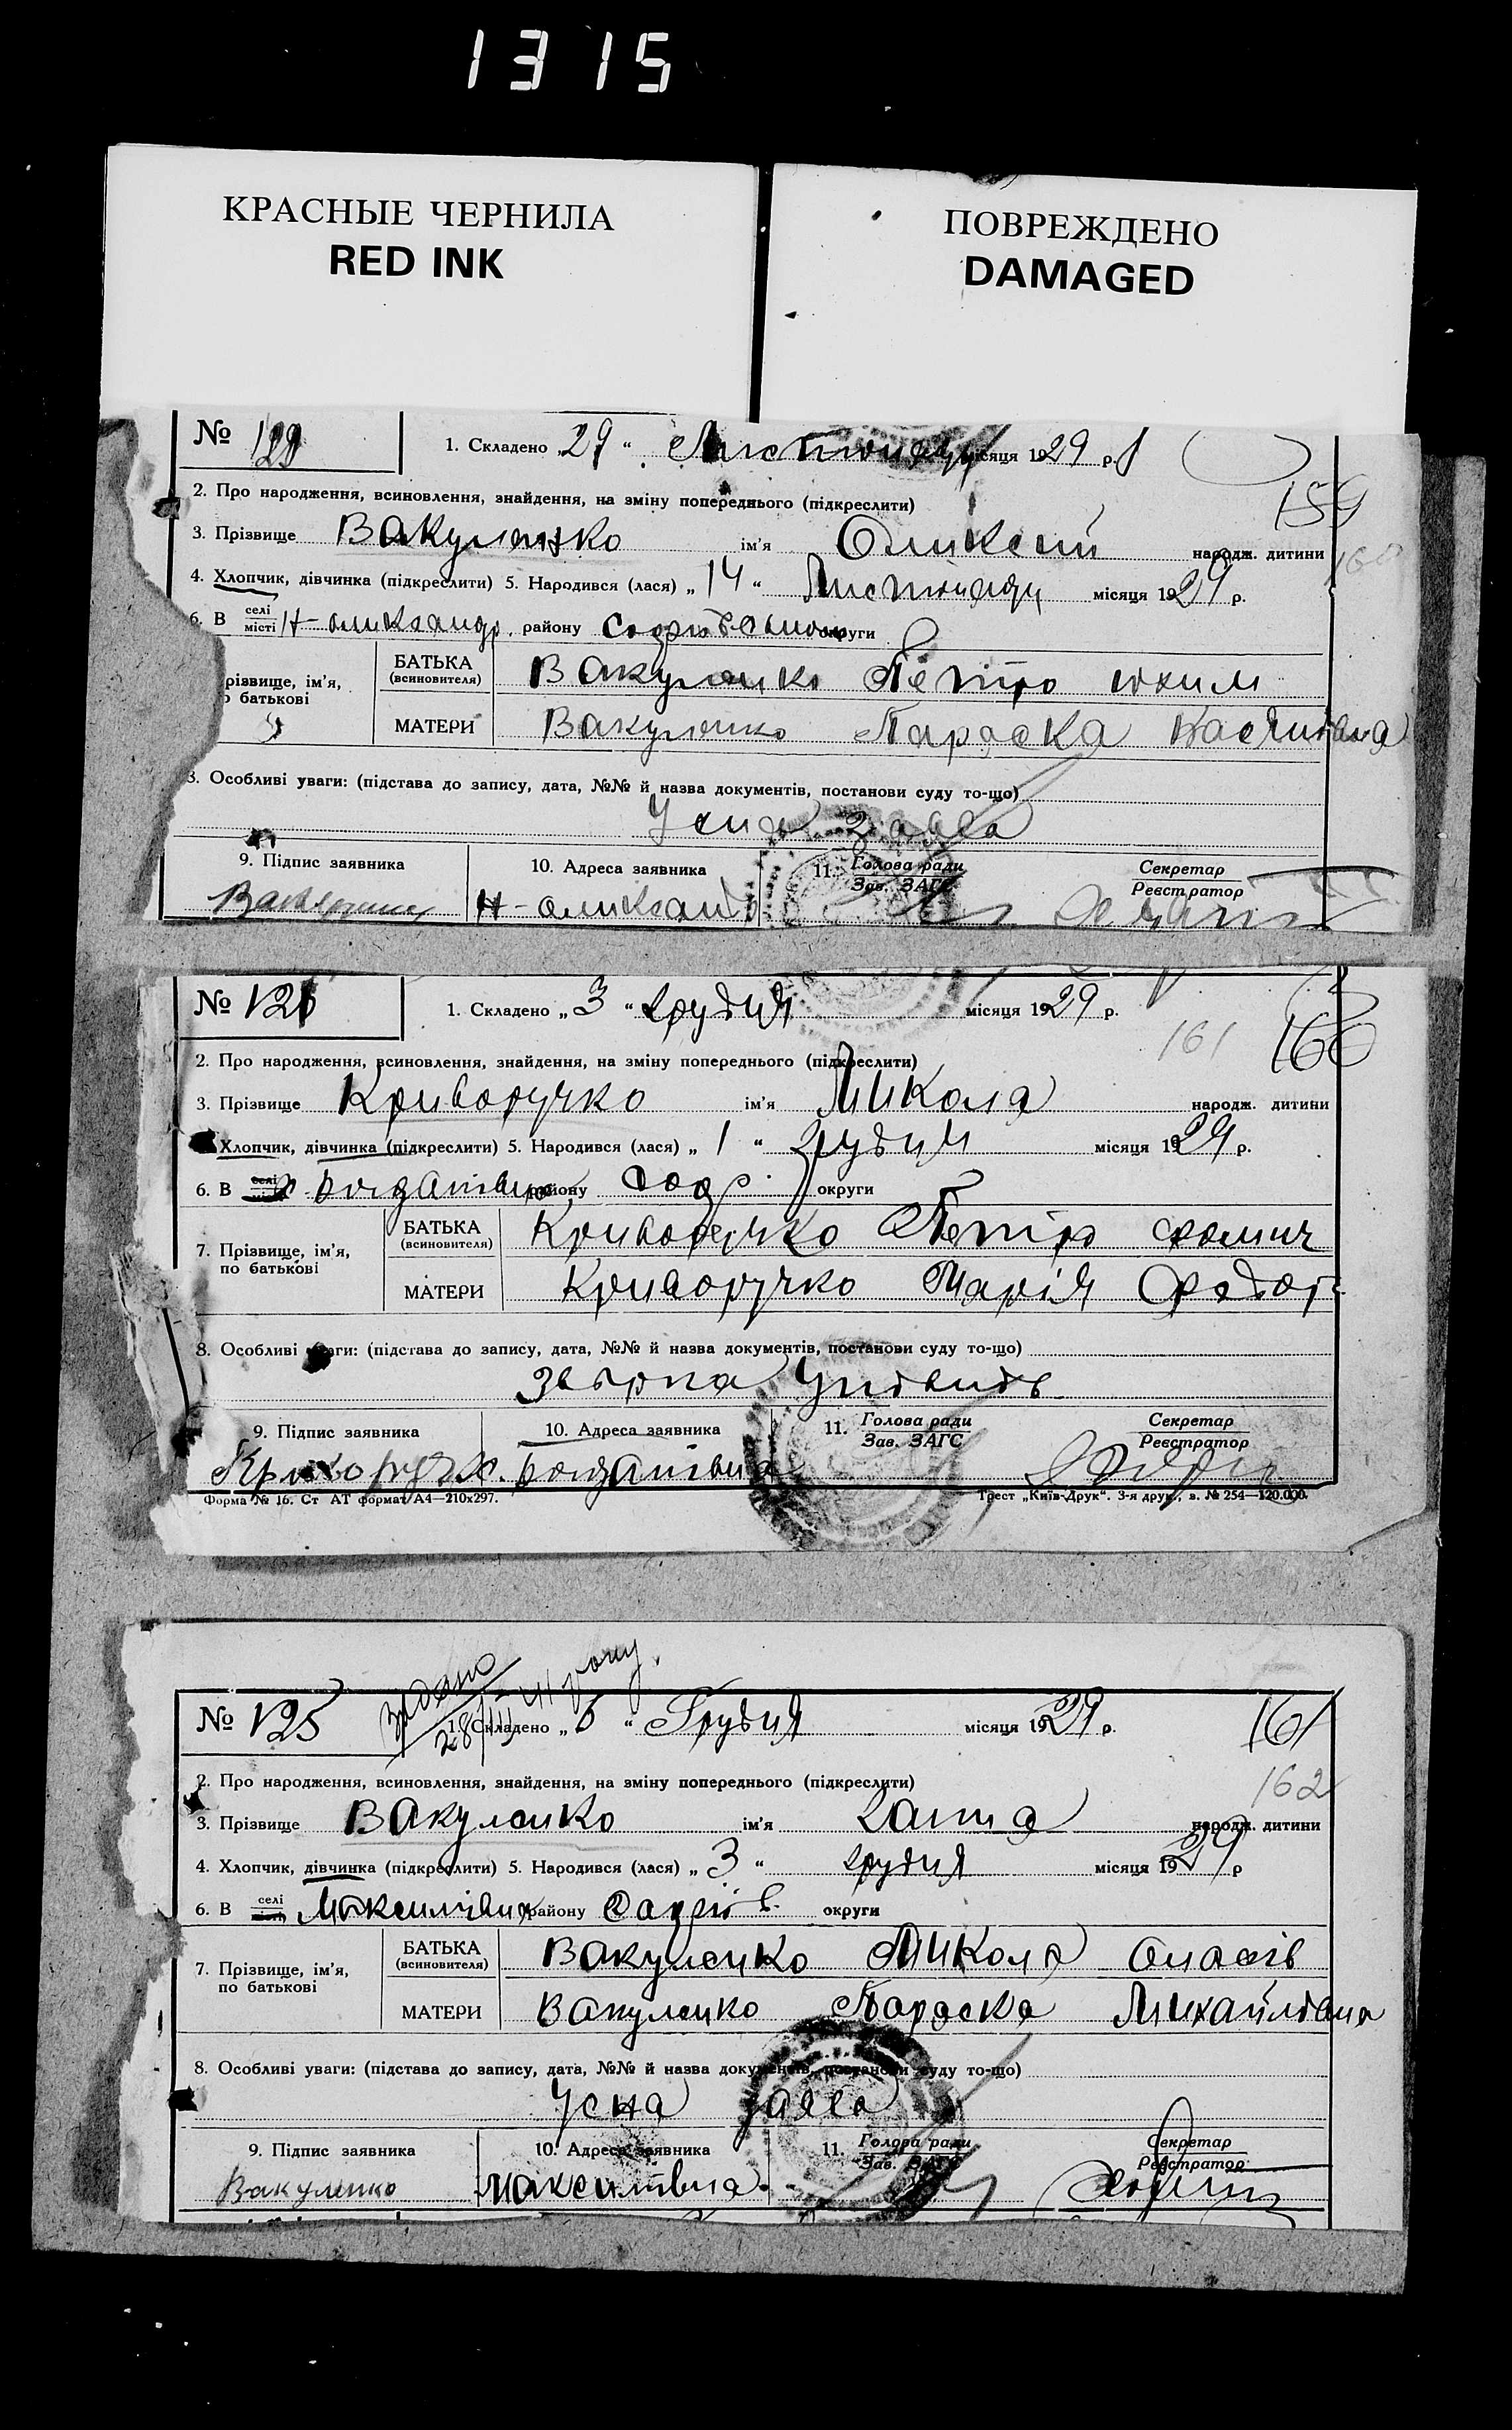 1315
КРАСНЫЕ ЧЕРНИЛА
RED INK
ПОВРЕЖДЕНО
DAMAGED
№ 1. Складено „29“ місяця 1929 р.
159
2. Про народження, всиновлення, знайдення, на зміну попереднього (підкреслити)
3. Прізвище Вакуленко ім'я Оликсей народж. дитини
160
4. Хлопчик, дівчинка (підкреслити) 5. Народився (лася) „14“ Листопаду місяця 1929 р.
6. В селі/місті району округи
різвище, ім'я, по батькові
БАТЬКА (всиновителя) Вакуленко Петро юхим
МАТЕРИ Вакуленко Параска Касянівна
8. Особливі уваги: (підстава до запису, дата, №№ й назва документів, постанови суду то-що)
Усна заява
9. Підпис заявника
10. Адреса заявника Н-оликсанд
11. Голова ради / Зав. ЗАГС
Секретар / Реєстратор
№ 1. Складено „3“ грудня місяця 1929 р.
161 160
2. Про народження, всиновлення, знайдення, на зміну попереднього (підкреслити)
3. Прізвище Криворучко ім'я Микола народж. дитини
Хлопчик, дівчинка (підкреслити) 5. Народився (лася) „1“ грудня місяця 1929 р.
6. В селі району Соф. округи
7. Прізвище, ім'я, по батькові
БАТЬКА (всиновителя) Криворучко Петро хомич
МАТЕРИ Криворучко Марія Федот
8. Особливі уваги: (підстава до запису, дата, №№ й назва документів, постанови суду то-що)
9. Підпис заявника Криворучко
10. Адреса заявника
11. Голова ради / Зав. ЗАГС
Секретар / Реєстратор
Форма № 16. Ст АТ формат А4—210х297.
Трест „Київ-Друк“. 3-я друк., в. № 254—120.000.
видано 28/III 41 року.
№ 125 1. Складено „5“ Грудня місяця 1929 р.
161
2. Про народження, всиновлення, знайдення, на зміну попереднього (підкреслити)
162
3. Прізвище Вакуленко ім'я Ганна народж. дитини
4. Хлопчик, дівчинка (підкреслити) 5. Народився (лася) „3“ грудня місяця 1929 р
6. В селі Максимівка району Софіїв. округи
7. Прізвище, ім'я, по батькові
БАТЬКА (всиновителя) Вакуленко Микола Опасів
МАТЕРИ Вакуленко Параска Михайлівна
8. Особливі уваги: (підстава до запису, дата, №№ й назва документів, постанови суду то-що)
Усна заява
9. Підпис заявника Вакуленко
10. Адреса заявника
11. Голова ради / Зав. ЗАГС
Секретар / Реєстратор